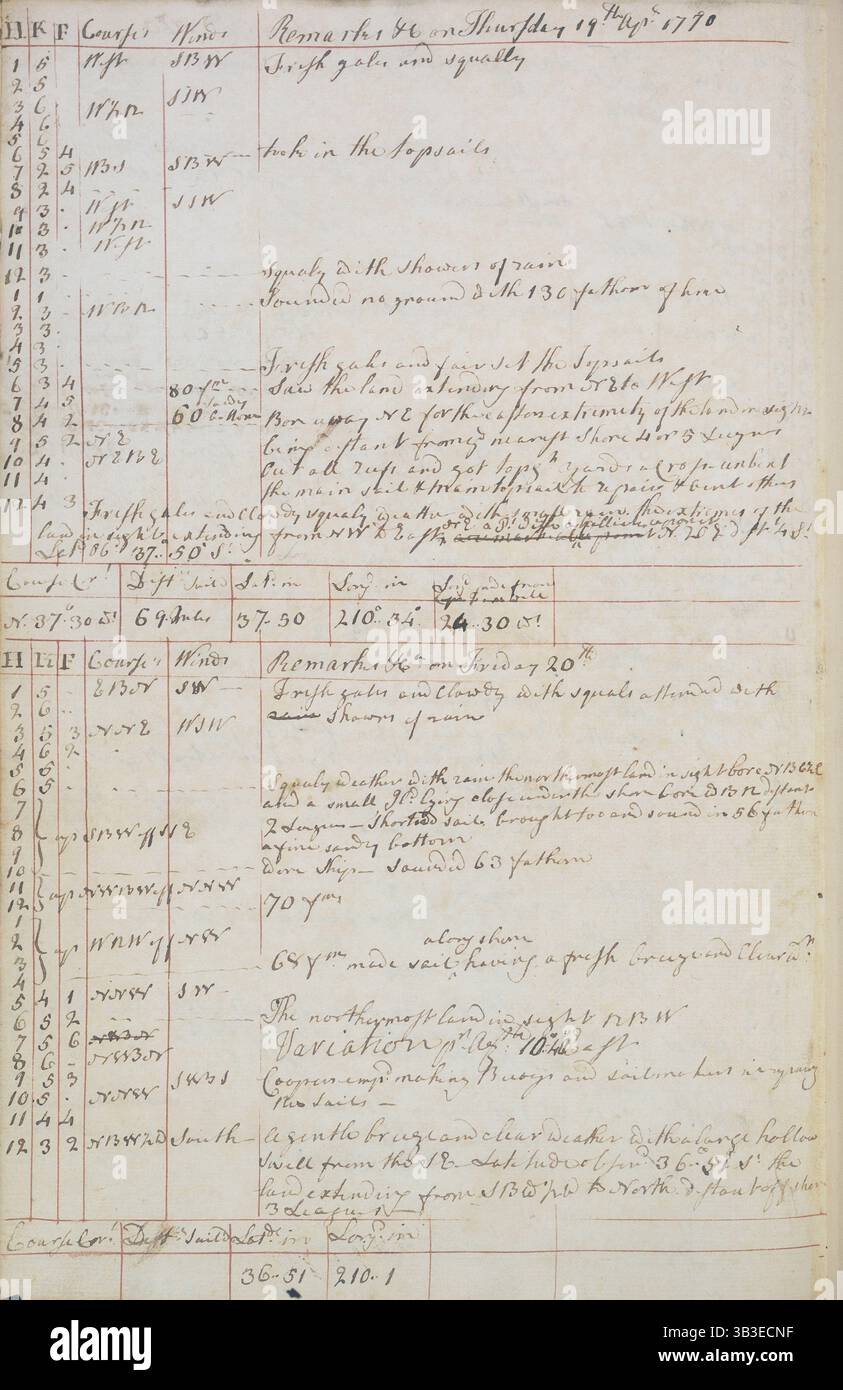 H K F Courses Winds Remarks &c on Thursday 19th Apr 1770
1 5 West SBW Fresh gales and squally
2 5
3 6 SSW
4 6
5 6
6 5 4 took in the topsails
7 2 5 WBS SBW
8 2 4
9 3 West SSW
10 3
11 3 West
12 3 Squaly with showers of rain
1 1 Sounded no ground with 130 fathom of line
2 3
3 3
4 3
5 3 Fresh gales and fair set the Topsails
6 3 4 80 fms Saw the land extending from NE to West
7 4 5
8 4 2 60 Bore away NE for the eastern extremity of the land in sight
9 5 2 NE being distant from ye nearest shore 4 or 5 Leagues
10 4 NEBE Out all reefs and got topgt yards across unbent
11 4 the main sail & main topsail to repair & bent others
12 4 3 Fresh gales and Clowdy squaly weather with some rain the extremes of the
land in sight extending from NW to East
Lat Obd 37..50 S
Course Cord Distce Saild Lat. in Longd in
N. 87°30 Wt 69 Miles 37-50 210° 34' 24..30 Wt
H K F Courses Winds Remarks &ca on Friday 20th
1 5 EBN SW Fresh gales and Clowdy with squals attended with
2 6 rain showers of rain
3 5 3 NNE WSW
4 6 2
5 5
6 5 Squaly weather with rain the northermost land in sight bore
7 and a small Isld lying close under the shore bore distant
8 up SBW off SSE 2 Leagues - Shortend sail brought too and sound in 56 fathom
9 a fine sandy bottom
10 Wore Ship - sounded 63 fathom
11 up NWBW off NNW
12 70 fms
1
2 up WNW off NW
3 along shore
4 68 fms made sail having a fresh breeze and Clear wr
5 4 1 NNW SW
6 5 2 The northermost land in sight
7 5 6 Variation pr Azth East
8 6
9 5 3 SWBS Coopers empd making Buoys and sailmakers repairing
10 5 NNW the sails -
11 4 4
12 3 2 South A gentle breeze and clear weather with a large hollow
swell from the SE - Latitude obser'd 36°-51' S. the
land extending from to North distant off shore
3 Leagues -
Course Cord Distce Saild Latd in Longd in
36-51 210..1
alamy
Image ID: B3ECNF
www.alamy.com